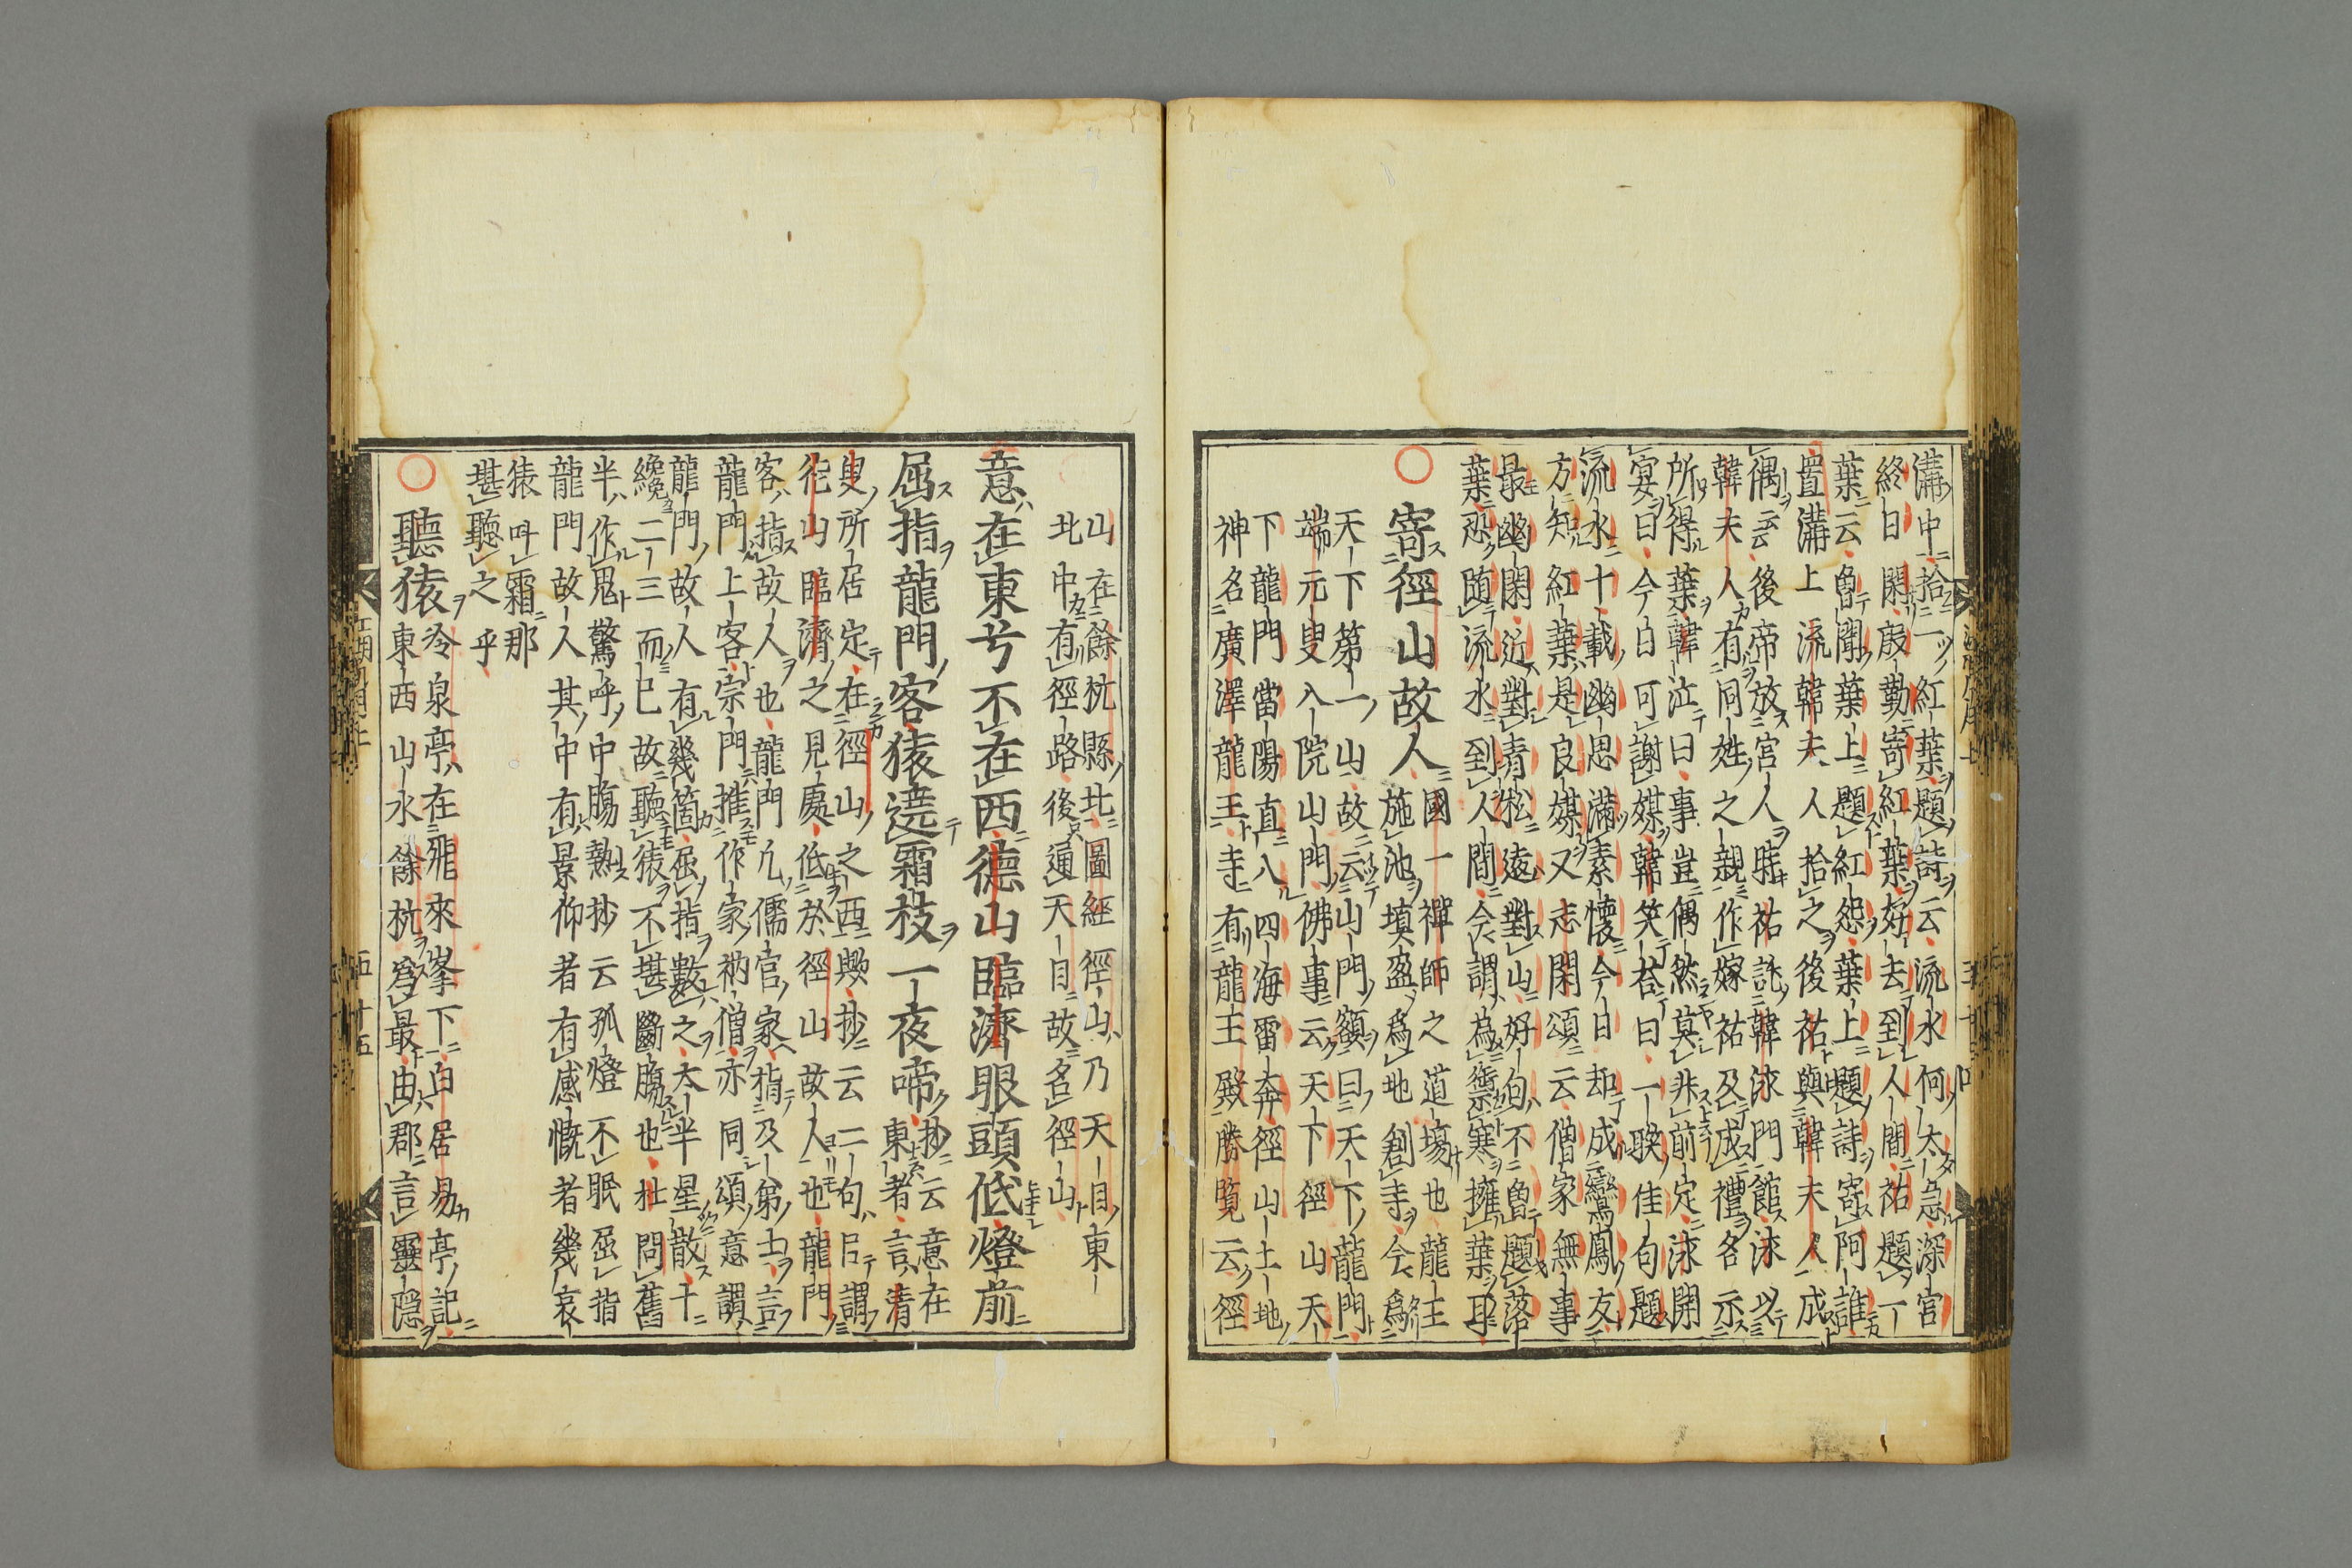 溝中拾一紅葉題詩云流水何太急深宮
終日閑殷勤寄紅葉好去到人間祐題一
葉云曽聞葉上題紅怨葉上題詩寄阿誰
置溝上流韓夫人拾之後祐與韓夫人成
偶云後帝放宮人時祐託韓泳門館泳以
韓夫人有同姓之親作嫁祐及成禮各示
所得葉韓泣曰事豈偶然莫非前定泳開
宴曰今日可謝媒韓笑荅曰一聯佳句題
流水十載幽思滿素懷今日却成鸞鳳友
方知紅葉是良媒又志閑頌云僧家無事
最幽閑近對青松遠對山好句不曽題落
葉恐随流水到人間今謂為禦寒擁葉耳
○
寄徑山故人
國一禪師之道塲也龍王
施池填盈爲地創寺今爲
天下第一山故云山門額曰天下龍門
端元叟入院山門佛事云天下徑山天
下龍門當陽直八四海雷奔徑山土地
神名廣澤龍王寺有龍王殿勝覧云徑
山在餘杭縣北圖經徑山乃天目東
北中有徑路後運天目故名徑山
意在東兮不在西德山臨濟眼頭低燈前
屈指龍門客猿遶霜枝一夜啼
抄云意在
東者言清
叟所居定在徑山之西歟抄云二句㠯謂
徃山臨濟之見處低於徑山故人也龍門
客指故人也龍門凢儒官家指及第士言
龍門上客宗門推作家衲僧亦同頌意謂
龍門故人有幾箇屈指數之太半星散干
纔二三而已故聽猿不堪斷膓也杜問舊
半作鬼驚呼中膓熱抄云孤燈不眠屈指
龍門故人其中有景仰者有感慨者幾哀
猿呌霜那
堪聽之乎
○
聽猿
冷泉亭在飛來峯下白居易亭記
東西山水餘杭爲最由郡言靈隠
五十五